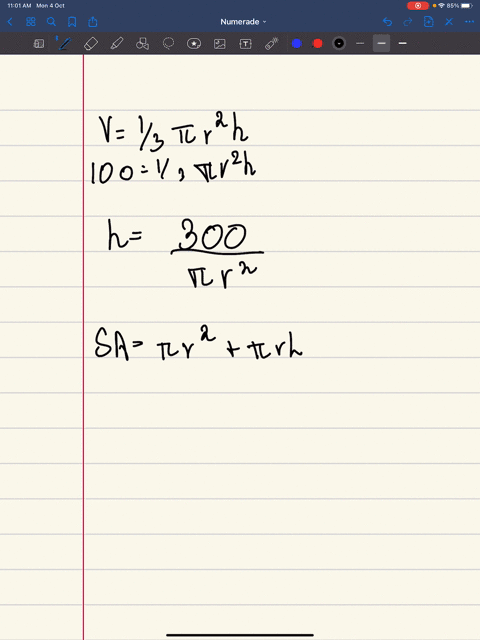 11:01 AM Mon 4 Oct
85%
Numerade
V = 1/3 πr²h
100 = 1/3 πr²h
h = 300
πr²
SA = πr² + πrh